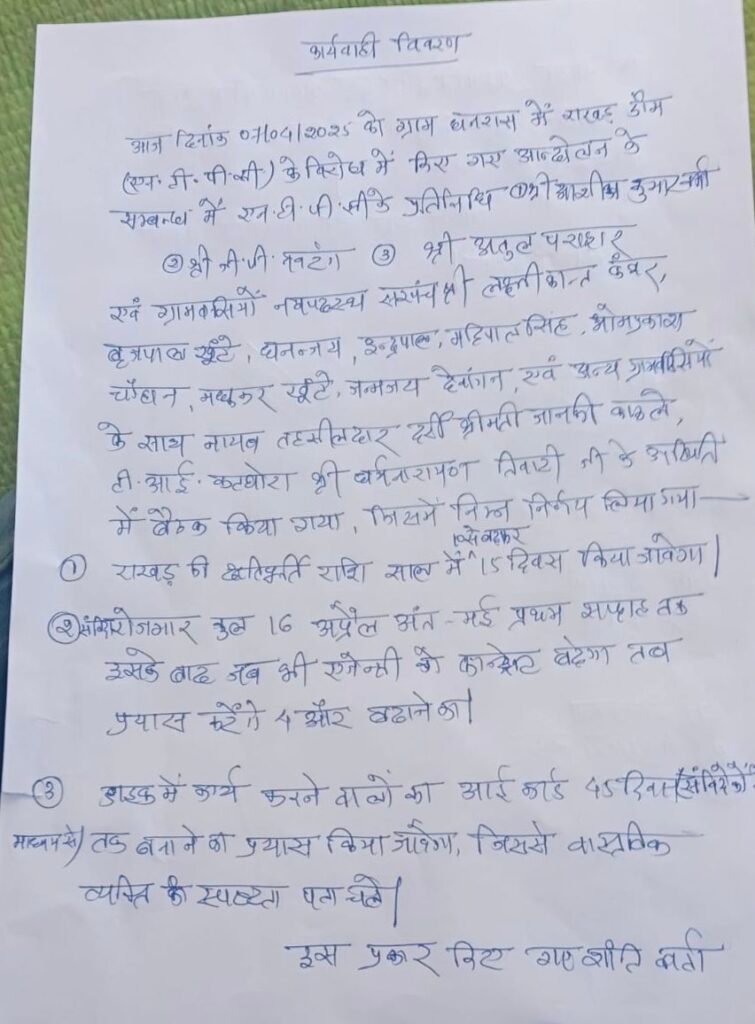 कार्यवाही विवरण
आज दिनांक 07/04/2025 को ग्राम धनरास में राखड़ डैम
(एन.टी.पी.सी.) के विरोध में किए गए आन्दोलन के
सम्बन्ध में एन.टी.पी.सी के प्रतिनिधि ① श्री आशीष कुमार
② श्री जी.पी. ③ श्री अतुल पराशर
एवं ग्रामवासियों नवपदस्थ सरपंच श्री लक्ष्मीकान्त कंवर,
बृजपाल खूंटे, धनन्जय, इन्द्रपाल, महिपाल सिंह, ओमप्रकाश
चौहान, मधुकर खूंटे, जन्मजय देवांगन, एवं अन्य ग्रामवासियों
के साथ नायब तहसीलदार दर्री श्रीमती जानकी काटले,
टी.आई. कटघोरा श्री धर्मनारायण तिवारी जी के
में बैठक किया गया, जिसमें निम्न निर्णय लिया गया—
① राखड़ की क्षतिपूर्ति राशि साल में 15 दिवस किया जावेगा|
② रोजगार कुल 16 अप्रैल अंत - मई प्रथम सप्ताह तक
इसके बाद जब भी एजेन्सी को कान्ट्रेक्ट बढ़ेगा तब
प्रयास करेंगे 4 और बढाने का|
③ डाइक में कार्य करने वालों का आई कार्ड 45 दिवस (संविदा के
माध्यम से) तक बनाने का प्रयास किया जावेगा, जिससे वास्तविक
व्यक्ति की स्पष्टता पता चले|
इस प्रकार किए गए शांति वार्ता